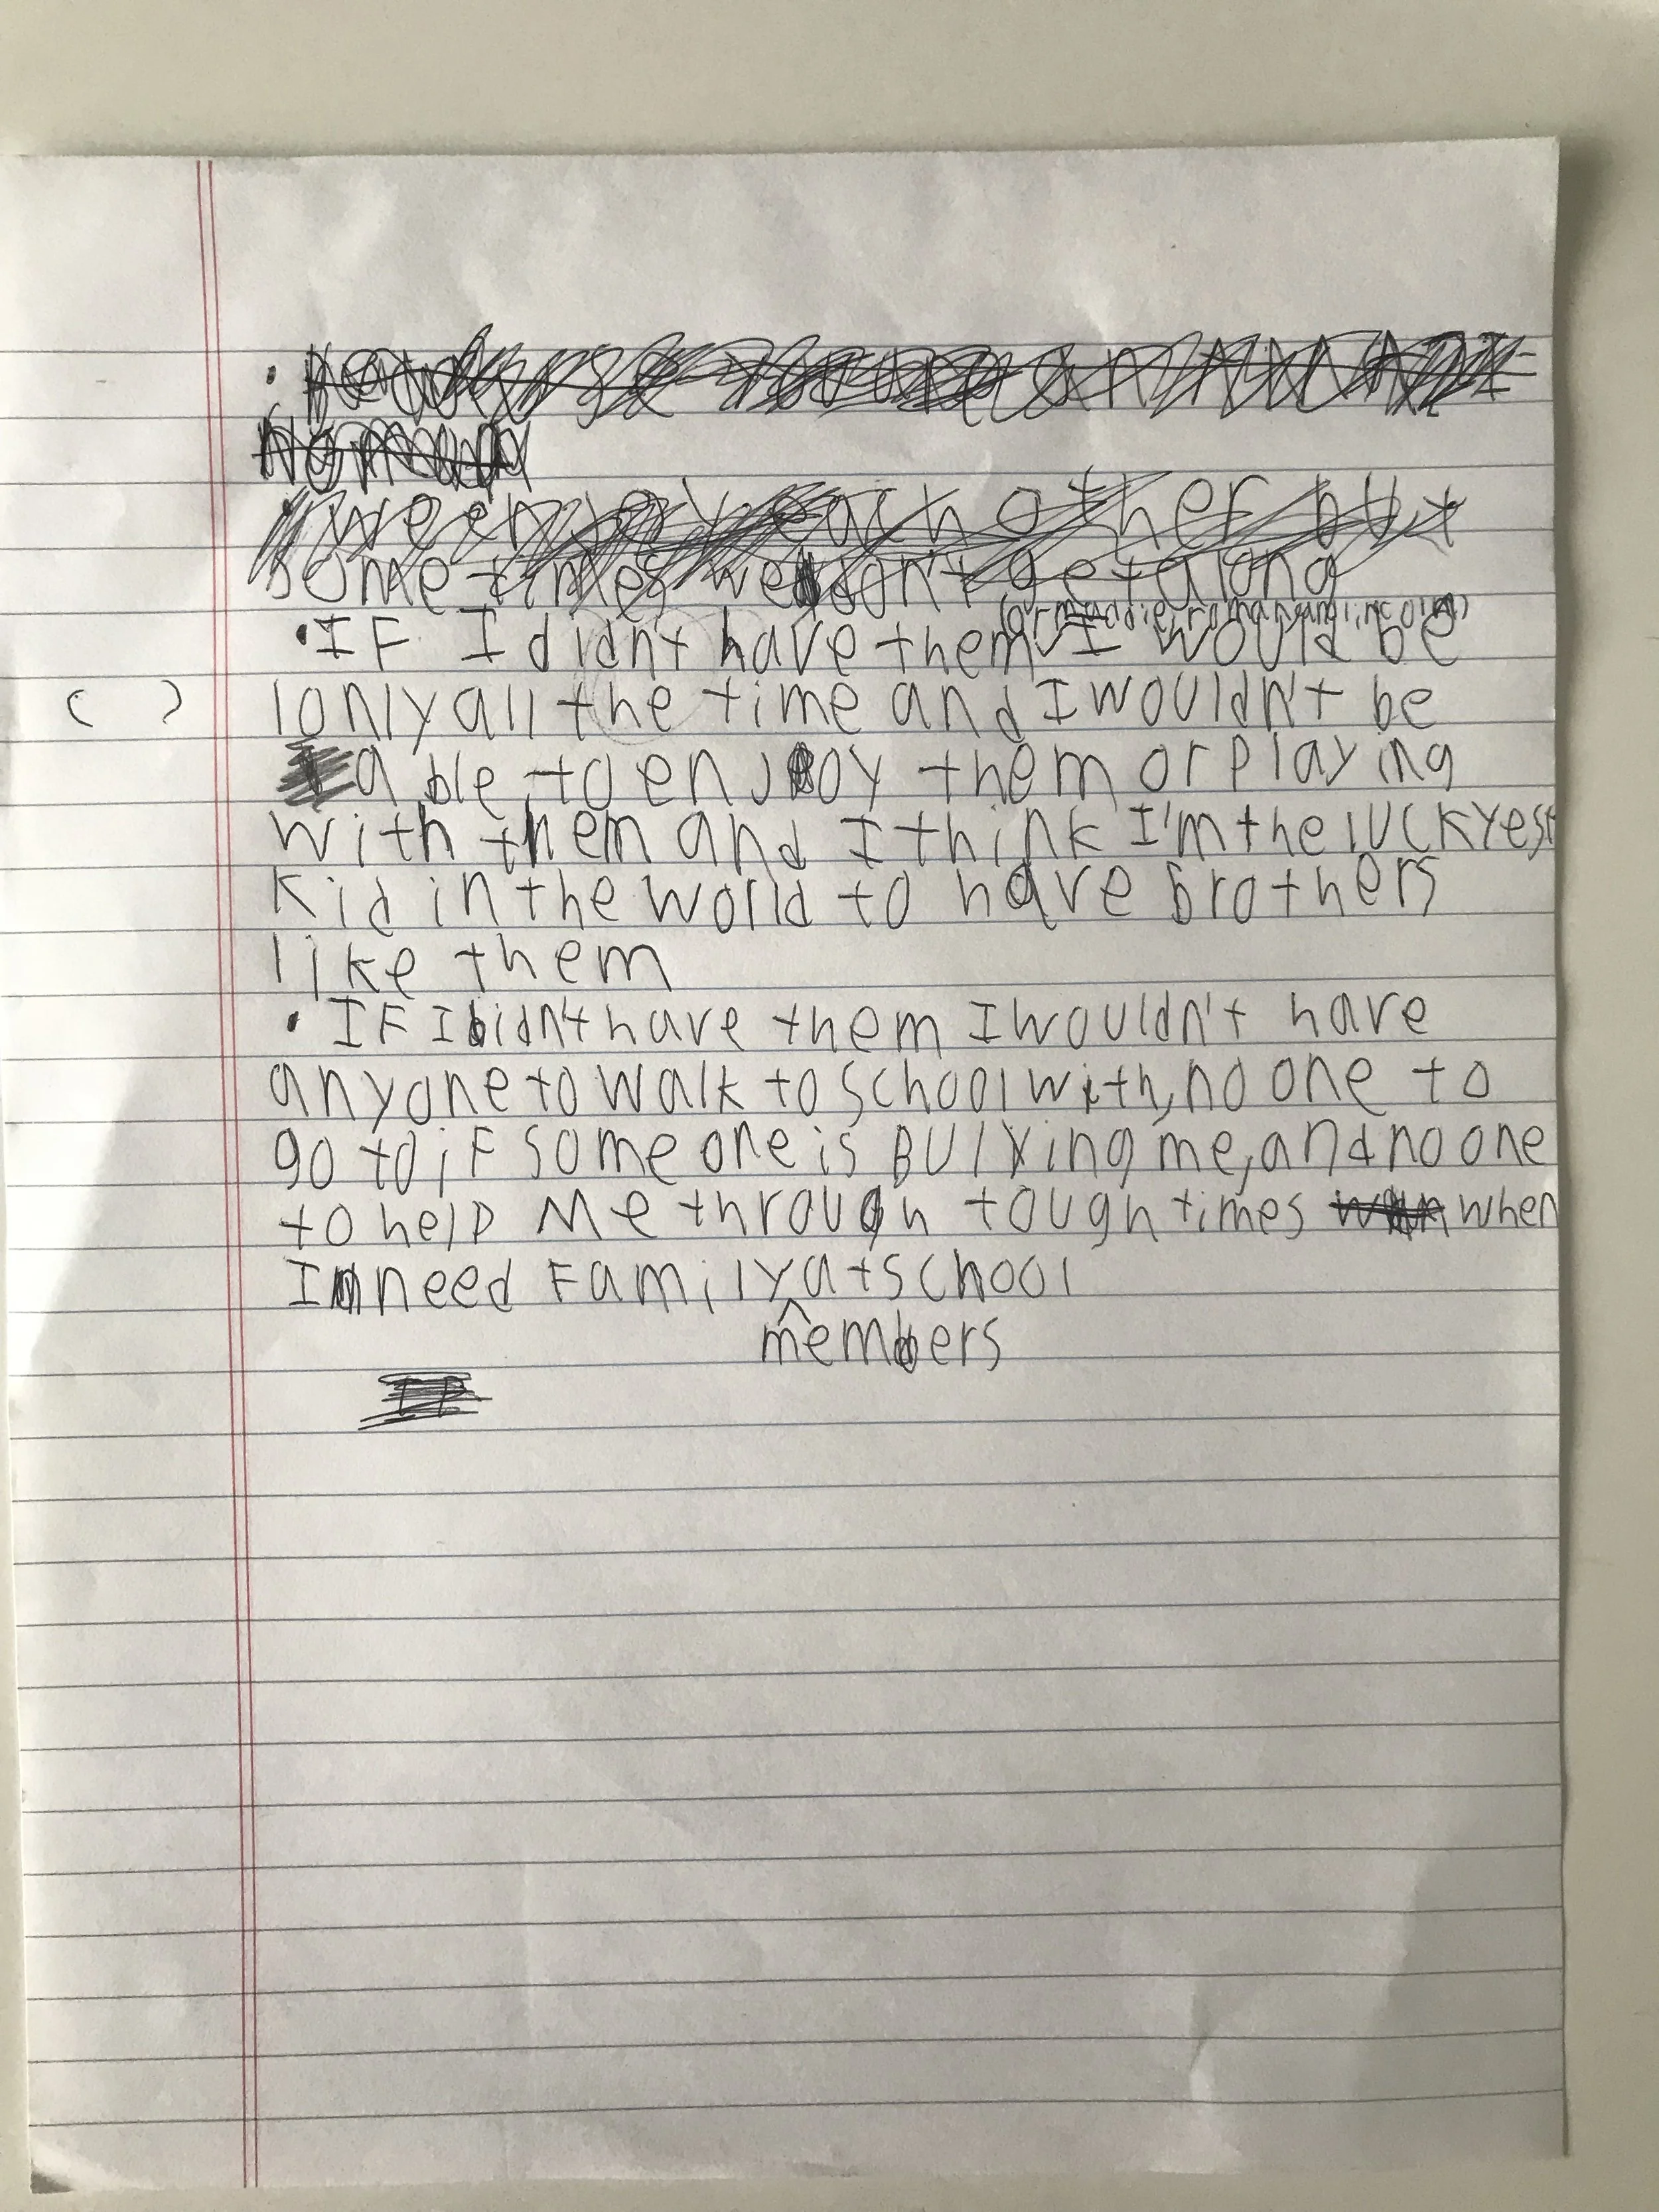 we enjoy each other but
some times we don't get along
(or maddie, roman, and lincoln)
• IF I didn't have them I would be
( ) lonly all the time and I wouldn't be
able to enjoy them or playing
with them and I think I'm the luckyest
kid in the world to have brothers
like them
• IF I didn't have them I wouldn't have
anyone to walk to school with, no one to
go to if some one is BUllying me, and no one
to help me through tough times when
I need Family at school
members